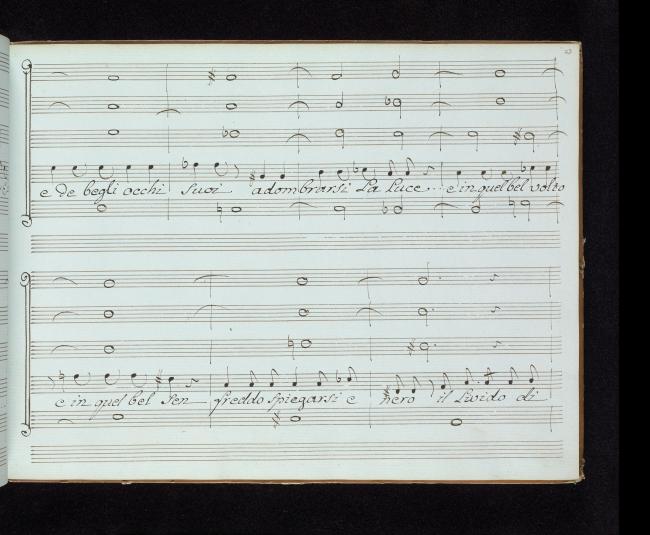 e de begli occhi suoi adombrarsi La Luce... e in quel bel volto
e in quel bel sen freddo spiegarsi e nero il Livido di